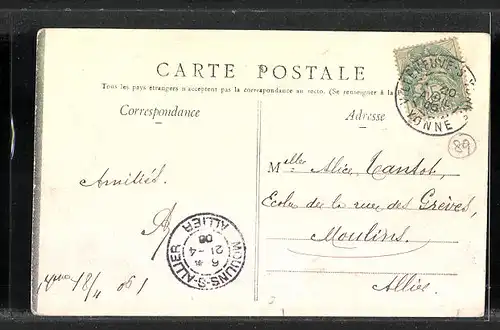 CARTE POSTALE
Tous les pays étrangers n'acceptent pas la correspondance au recto. (Se renseigner à la
Correspondance
Adresse
VILLENEUVE-S-YONNE
YONNE
89
Melle Alice Tantot,
Ecole de la rue des Grèves,
Moulins.
Allier.
Amitiés.
A
MOULINS-S-ALLIER
ALLIER
6
21 - 4
06
18/4 06